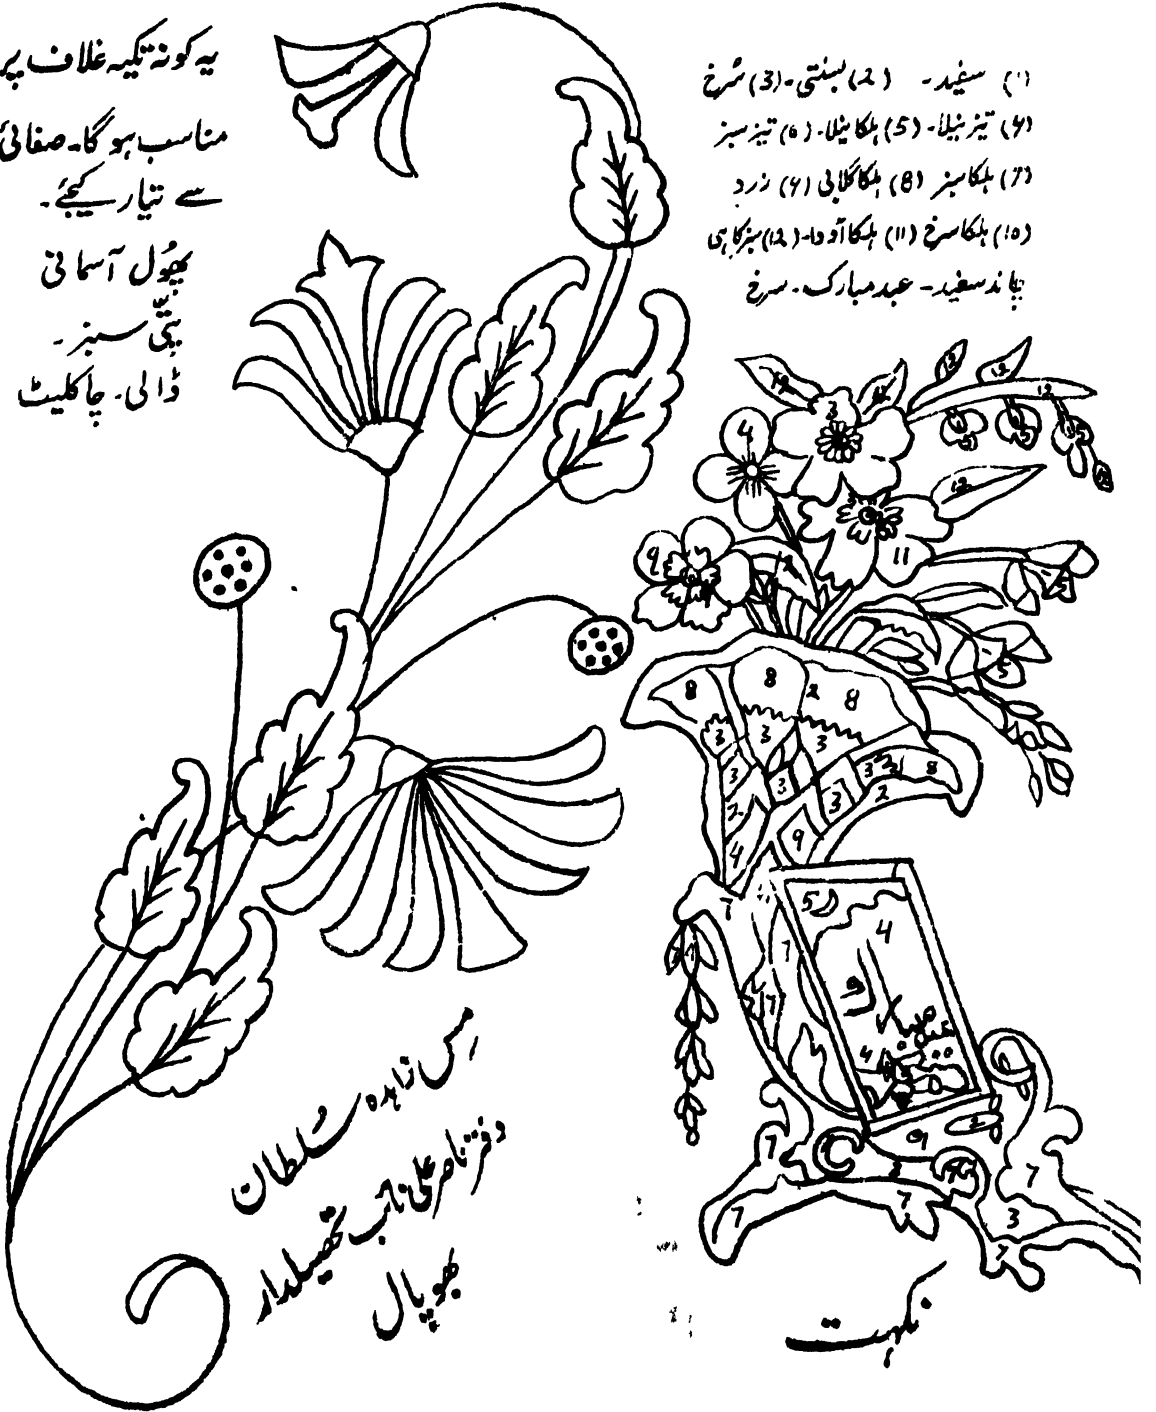 یہ کونہ تکیہ غلاف پر
مناسب ہو گا۔ صفائی
سے تیار کیجئے۔
پھول آسمانی
پتّی سبز۔
ڈالی۔ چاکلیٹ
(۱) سفید۔ (2) بسنتی۔ (3) سُرخ
(4) تیز نیلا۔ (5) ہلکا نیلا۔ (6) تیز سبز
(7) ہلکا سبز (8) ہلکا گلابی (9) زرد
(10) ہلکا سرخ (11) ہلکا اودا۔ (12) سبز کاہی
چاند سفید۔ عید مبارک۔ سرخ
مس زاہدہ سُلطان
دفتر ناصر علی نائب تحصیلدار
بھوپال
نکہت